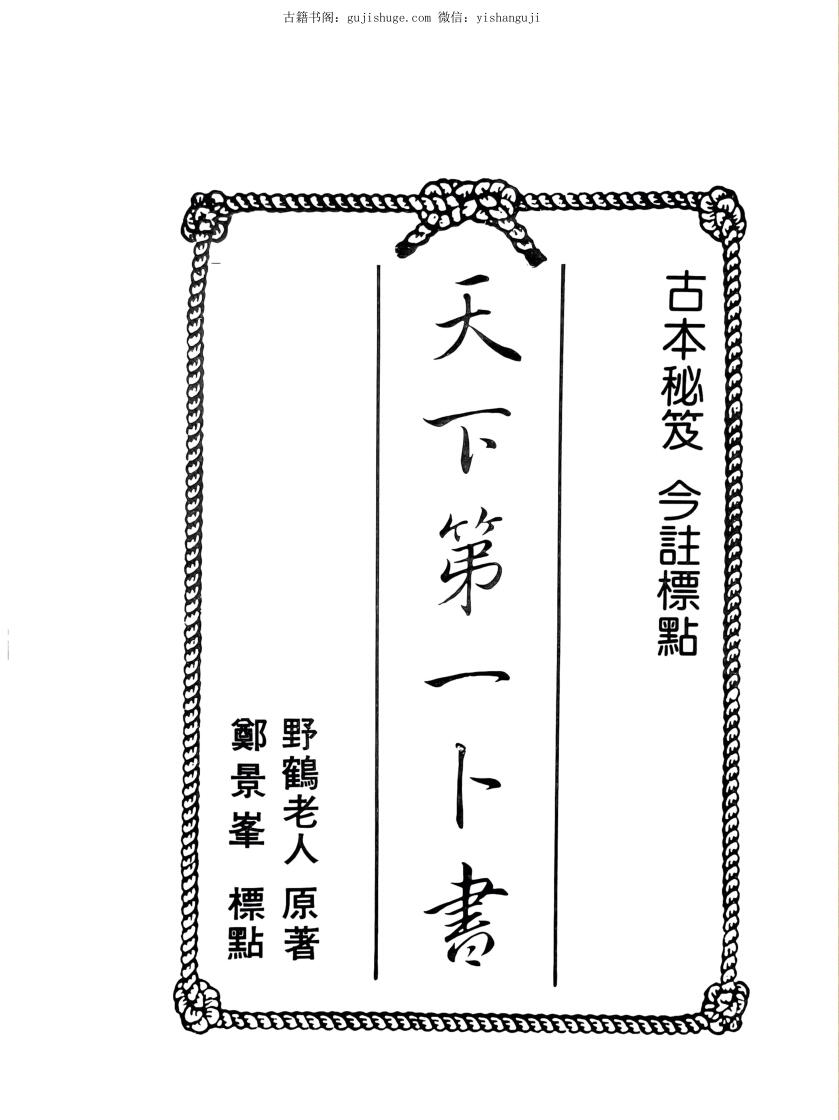 古籍书阁：gujishuge.com 微信：yishanguji
古本秘笈 今註標點
天下第一卜書
野鶴老人 原著
鄭景峯 標點